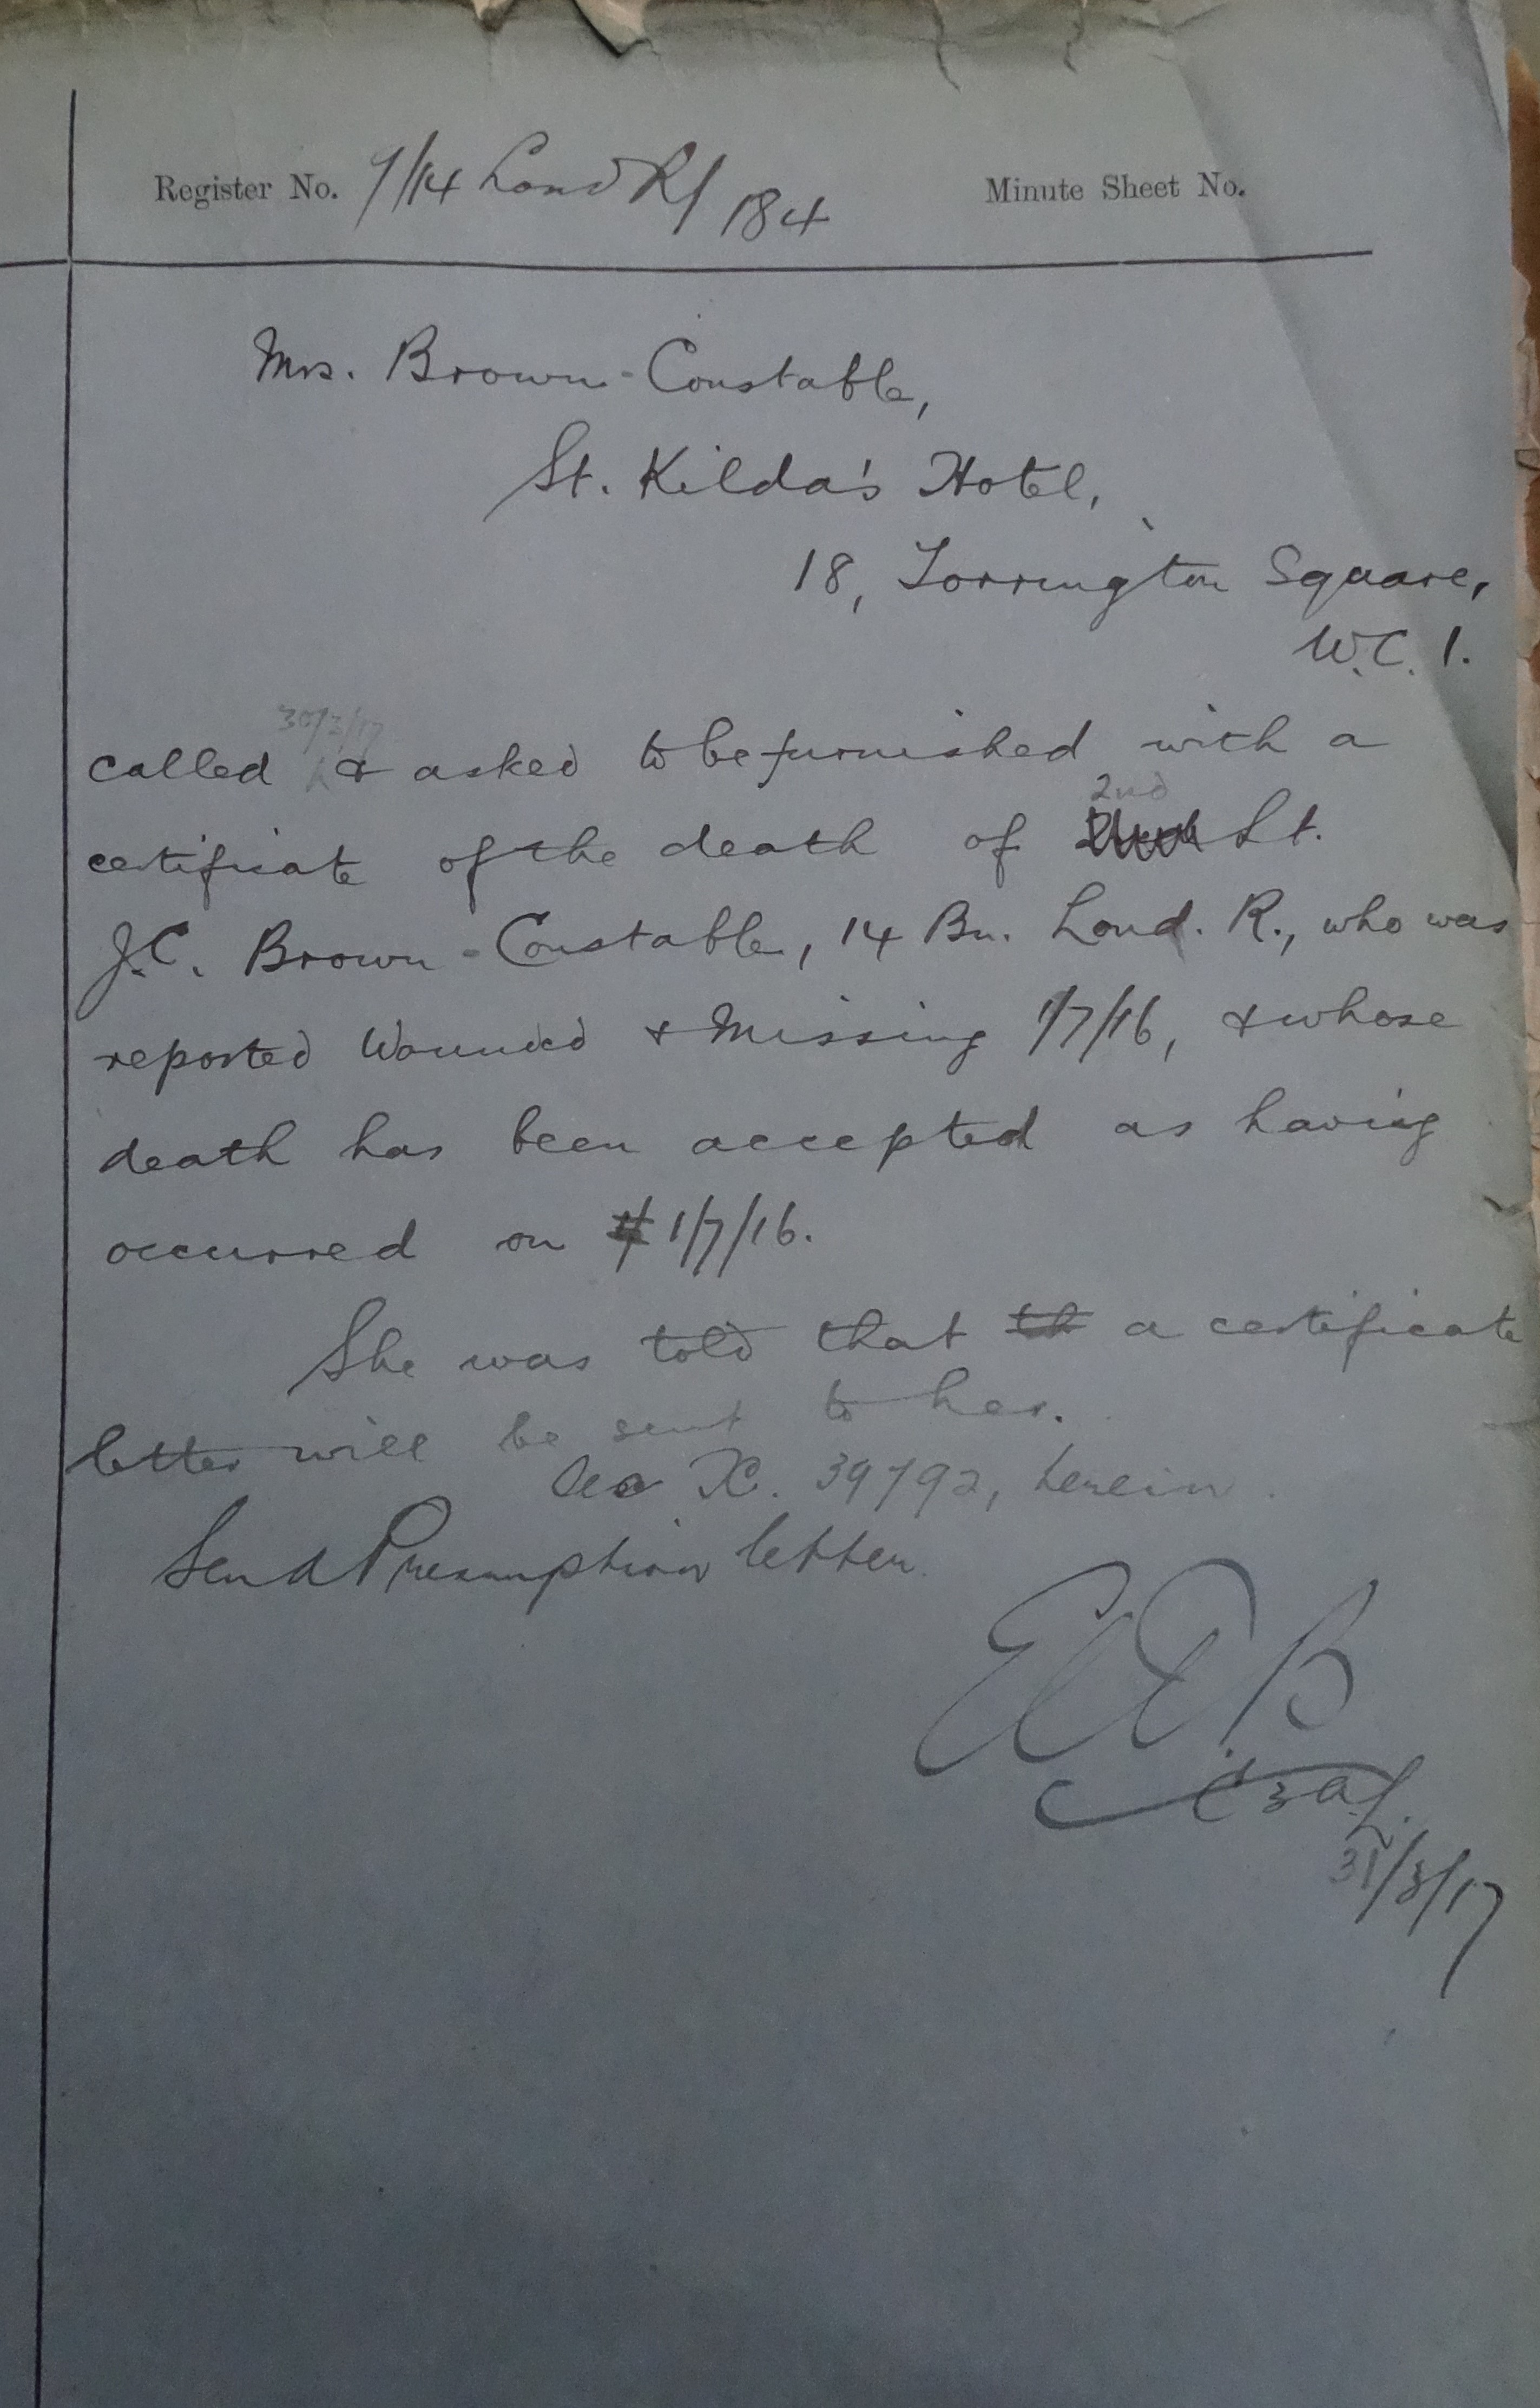 Register No. 9/14 Lond R/184 Minute Sheet No.
Mrs. Brown-Constable,
St. Kilda's Hotel,
18, Torrington Square,
W.C. 1.
30/3/17
called & asked to be furnished with a
2nd
certificate of the death of Lt.
J.C. Brown-Constable, 14 Bn. Lond. R., who was
reported Wounded & Missing 1/7/16, & whose
death has been accepted as having
occurred on 1/7/16.
She was told that th a certificate
letter will be sent to her.
See X. 39792, herein.
Send Presumption letter.
31/3/17